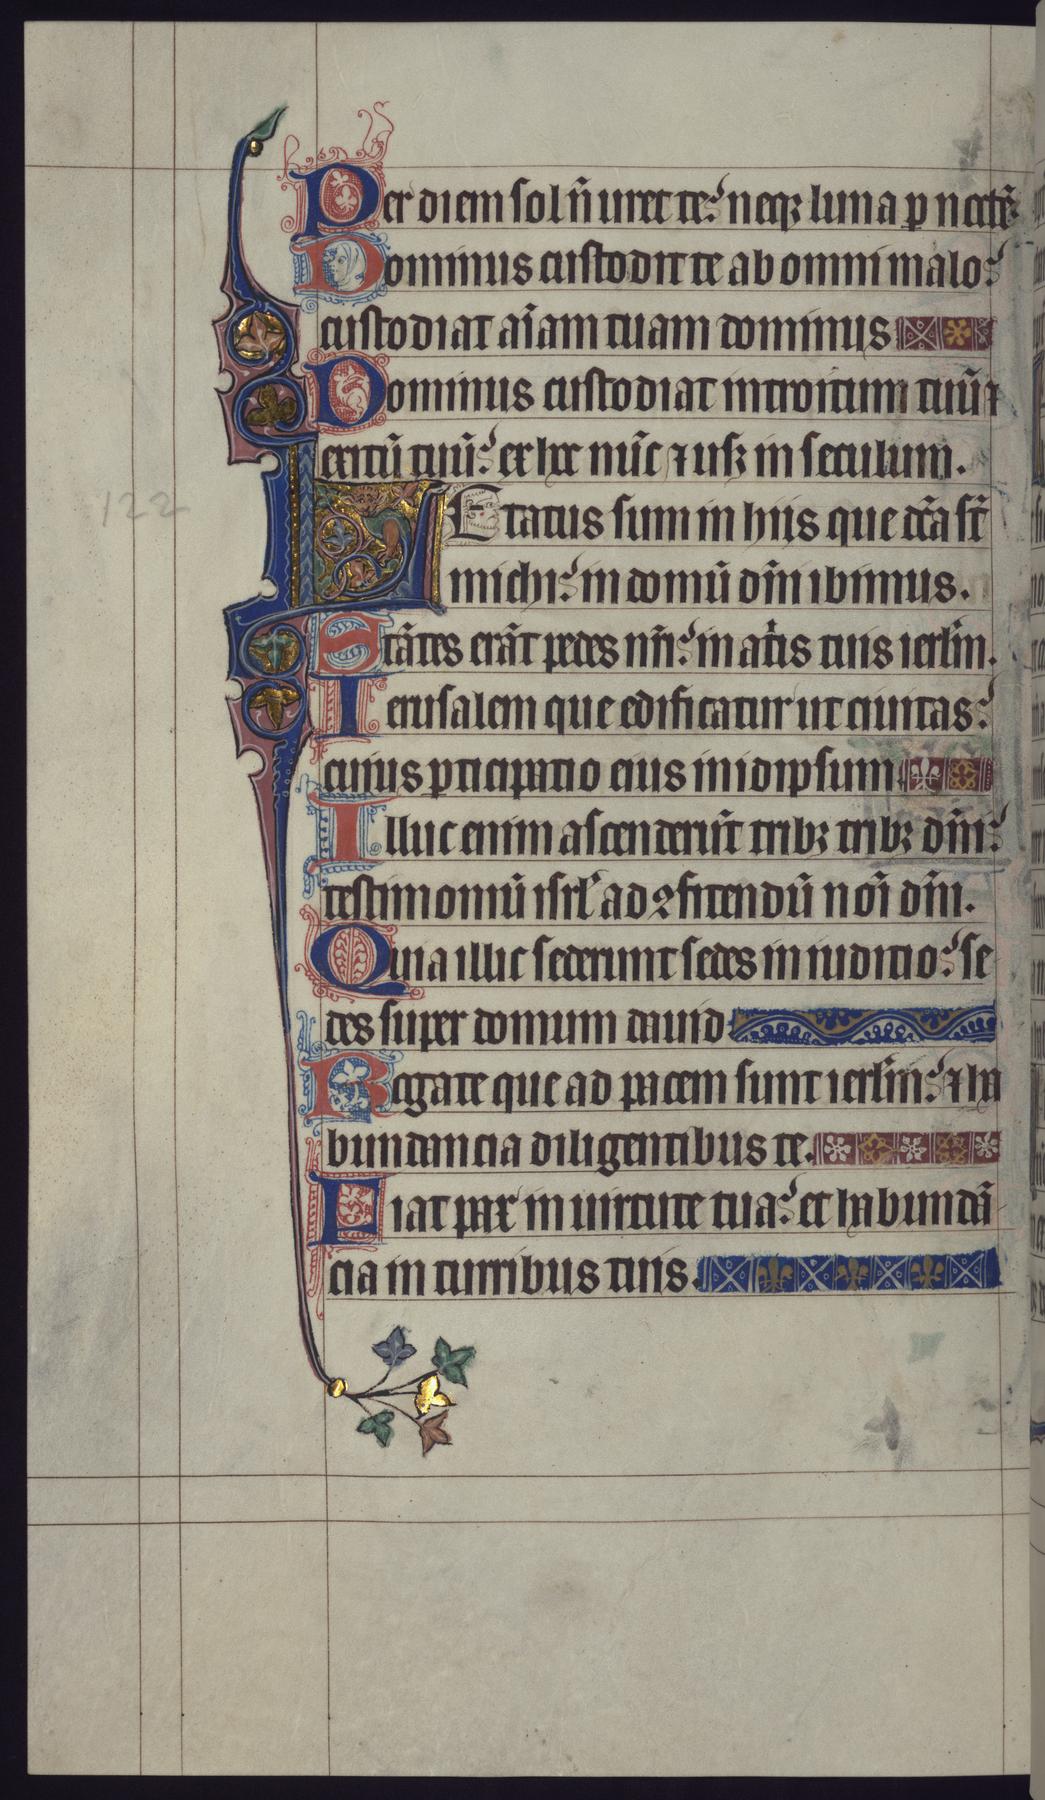 Per diem sol ñ uret te: neqꝫ luna ꝑ noctẽ.
Dominus custodit te ab omni malo:
custodiat aĩam tuam dominus
Dominus custodiat introitum tuũ ⁊
exitũ tuũ: ex hoc nũc ⁊ usꝫ in seculum.
LEtatus sum in hiis que dc̃a st̃
michi: in domũ dñi ibimus.
Stãtes erãt pedes nr̃i: in atĩs tuis ierlr̃m.
Ierusalem que edificatur ut ciuitas:
cuius ꝑticipatio eius in idipsum.
Illuc enim ascenderũt tribꝫ tribꝫ dñi:
testimoniũ isrl̃ ad ꝯfitendũ noĩ dñi.
Quia illic sederunt sedes in iuditio: se
des super domum dauid
Rogate que ad pacem sunt ierlr̃m: ⁊ ha
bundancia diligentibus te.
Fiat pax in uirtute tua: et habundã
cia in turribus tuis.
122